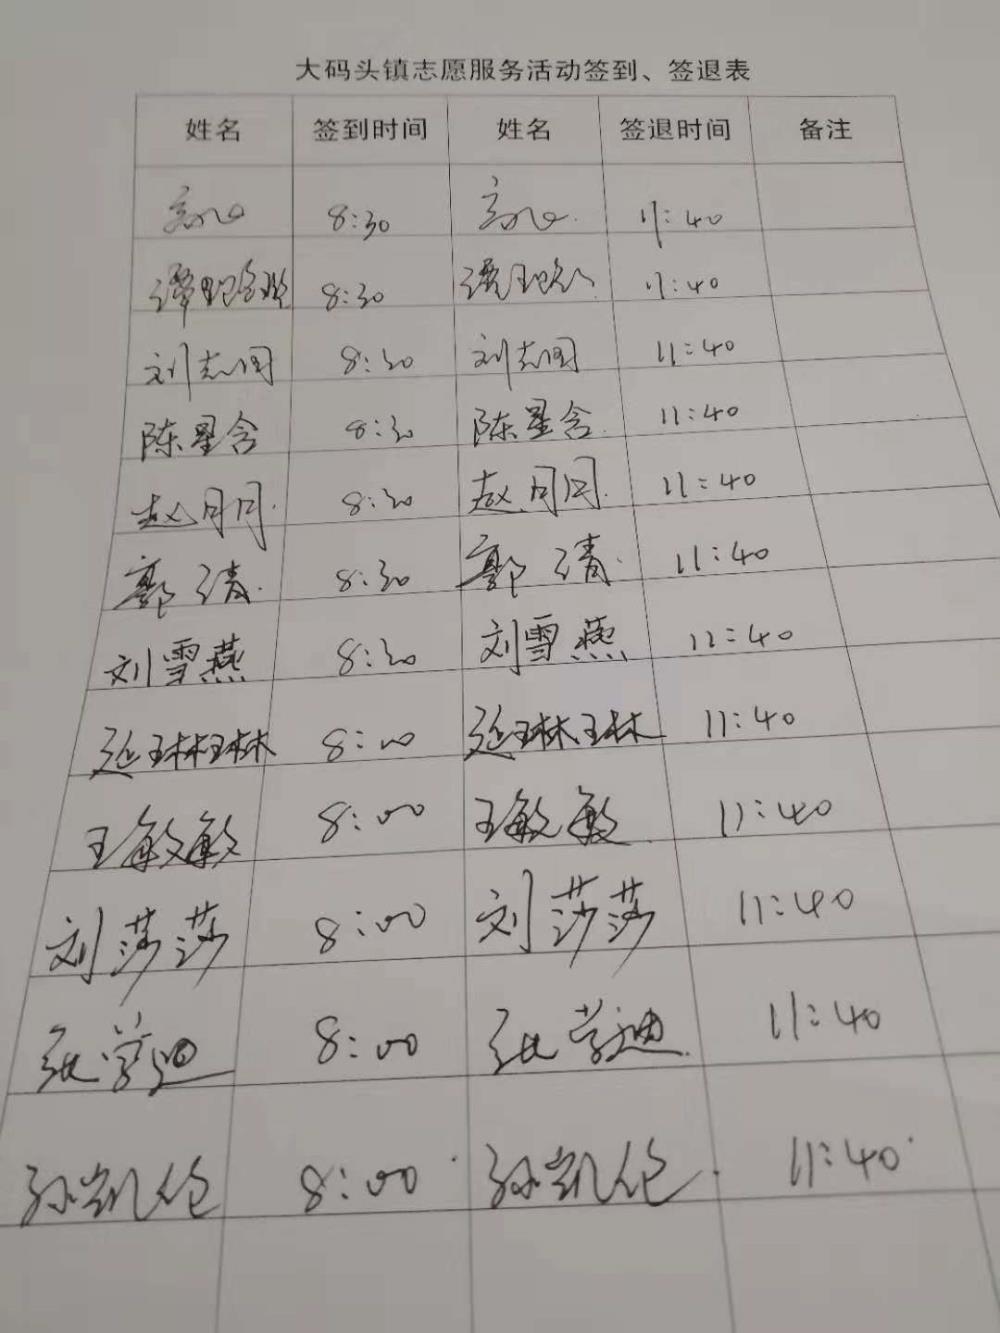 大码头镇志愿服务活动签到、签退表
姓名 签到时间 姓名 签退时间 备注
8:30 11:40
8:30 11:40
刘志国 8:30 刘志国 11:40
陈星含 8:30 陈星含 11:40
赵月月 8:30 赵月月 11:40
郭清 8:30 郭清 11:40
刘雪燕 8:30 刘雪燕 11:40
延琳琳 8:00 延琳琳 11:40
王敏敏 8:00 王敏敏 11:40
刘莎莎 8:00 刘莎莎 11:40
张学迪 8:00 张学迪 11:40
孙凯伦 8:00 孙凯伦 11:40